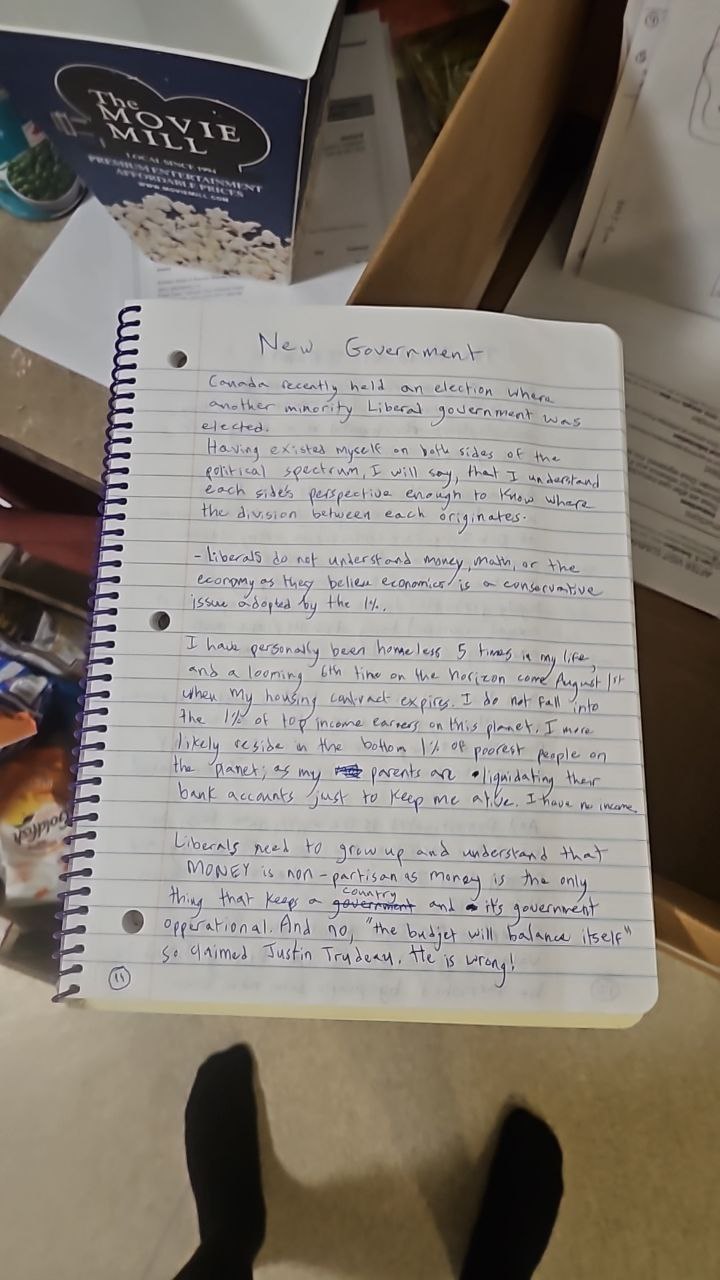 The
MOVIE
MILL
LOCAL SINCE 1994
PREMIUM ENTERTAINMENT
AFFORDABLE PRICES
WWW.MOVIEMILL.COM
New Government
Canada recently held an election where
another minority Liberal government was
elected.
Having existed myself on both sides of the
political spectrum, I will say, that I understand
each side's perspective enough to know where
the division between each originates.
- Liberals do not understand money, math, or the
economy as they believe economics is a conservative
issue adopted by the 1%.
I have personally been homeless 5 times in my life,
and a looming 6th time on the horizon come August 1st
when my housing contract expires. I do not fall into
the 1% of top income earners on this planet. I more
likely reside in the bottom 1% of poorest people on
the planet; as my parents are liquidating their
bank accounts just to keep me alive. I have no income.
Liberals need to grow up and understand that
MONEY is non-partisan as money is the only
thing that keeps a government country and it's government
opperational. And no, "the budjet will balance itself"
so claimed Justin Trudeau. He is wrong!
11
Goldfish